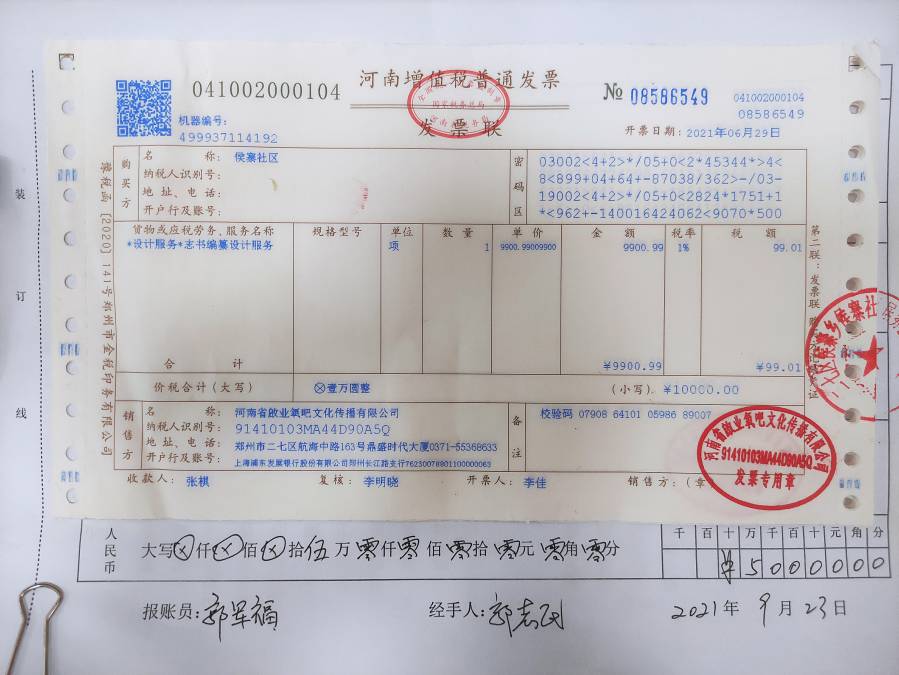 041002000104
河南增值税普通发票
发票联
№ 08586549
041002000104
08586549
机器编号:
499937114192
开票日期: 2021年06月29日
购买方
名 称: 侯寨社区
纳税人识别号:
地 址、电 话:
开户行及账号:
密码区
03002<4+2>*/05+0<2*45344*>4<
8<899+04+64+-87038/362>-/03-
19002<4+2>*/05+0<2824*1751+1
*<962+-140016424062<9070*500
货物或应税劳务、服务名称 规格型号 单位 数 量 单 价 金 额 税率 税 额
*设计服务*志书编纂设计服务 项 1 9900.99009900 9900.99 1% 99.01
合 计 ¥9900.99 ¥99.01
价税合计(大写) ⊗壹万圆整 (小写) ¥10000.00
销售方
名 称: 河南省啟业氧吧文化传播有限公司
纳税人识别号: 91410103MA44D90A5Q
地 址、电 话: 郑州市二七区航海中路163号鼎盛时代大厦0371-55368633
开户行及账号: 上海浦东发展银行股份有限公司郑州长江路支行76250078801100000063
备注
校验码 07908 64101 05986 89007
收款人: 张棋 复核: 李明晓 开票人: 李佳 销售方:(章
河南省啟业氧吧文化传播有限公司
91410103MA44D90A5Q
发票专用章
豫税函[2020]141号郑州市金税印务有限公司
第二联:发票联
装
订
线
人民币
大写⊗仟⊗佰⊗拾伍万零仟零佰零拾零元零角零分
千 百 十 万 千 百 十 元 角 分
¥ 5 0 0 0 0 0 0
报账员: 郭军福 经手人: 郭志民 2021年 9月 23日